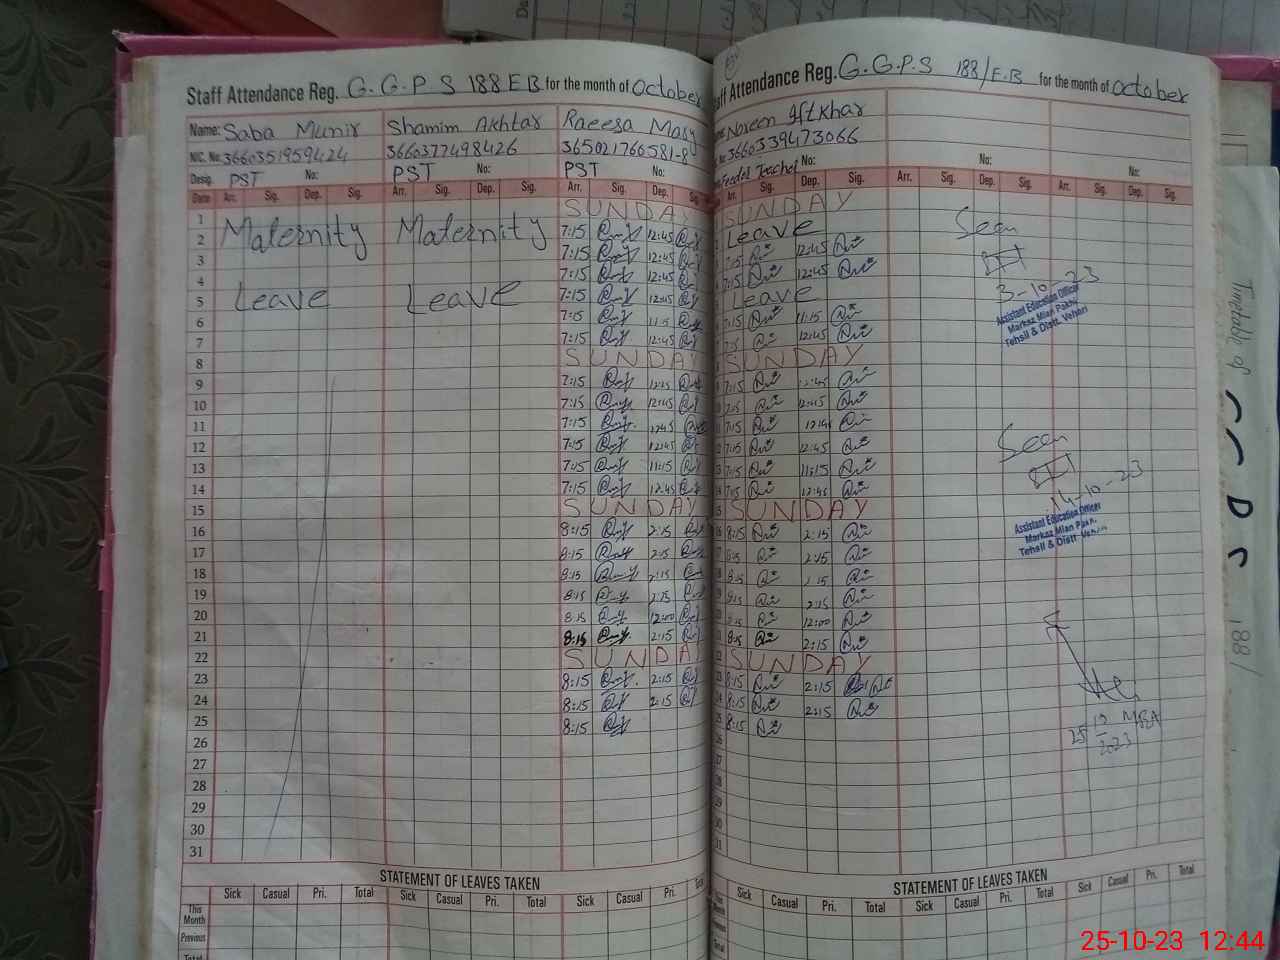 Staff Attendance Reg. G.G.P.S 188 EB for the month of October
Name: Saba Munir Shamim Akhtar Raeesa Masy
N.I.C. No. 3660351959424 3660377498426 365021766581-8
Desig. PST No: PST No: PST No:
Date Arr. Sig. Dep. Sig. Arr. Sig. Dep. Sig. Arr. Sig. Dep. Sig.
1 SUNDAY
2 Maternity Maternity 7:15 12:45
3 7:15 12:45
4 7:15 12:45
5 Leave Leave 7:15 12:45
6 7:15 11:15
7 7:15 12:45
8 SUNDAY
9 7:15 12:45
10 7:15 12:45
11 7:15 12:45
12 7:15 12:45
13 7:15 11:15
14 7:15 12:45
15 SUNDAY
16 8:15 2:15
17 8:15 2:15
18 8:15 2:15
19 8:15 2:15
20 8:15 12:00
21 8:15 2:15
22 SUNDAY
23 8:15 2:15
24 8:15 2:15
25 8:15
26
27
28
29
30
31
STATEMENT OF LEAVES TAKEN
Sick Casual Pri. Total Sick Casual Pri. Total Sick Casual Pri. Total
This Month
Previous
Total
Staff Attendance Reg. G.G.P.S 188/E.B for the month of October
Noreen Iftkhar
3660339473066
Feeder Teacher No: No: No:
Arr. Sig. Dep. Sig. Arr. Sig. Dep. Sig. Arr. Sig. Dep. Sig.
SUNDAY
Leave
7:15 12:45
7:15 12:45
Leave
7:15 11:15
7:15 12:45
SUNDAY
7:15 12:45
7:15 12:45
7:15 12:45
7:15 12:45
7:15 11:15
7:15 12:45
SUNDAY
8:15 2:15
8:15 2:15
8:15 2:15
8:15 2:15
8:15 12:00
8:15 2:15
SUNDAY
8:15 2:15
8:15 2:15
8:15
Seen
3-10-23
Assistant Education Officer
Markaz Mian Pakhi
Tehsil & Distt. Vehari
Seen
14-10-23
Assistant Education Officer
Markaz Mian Pakhi
Tehsil & Distt. Vehari
MEA
25 10 2023
STATEMENT OF LEAVES TAKEN
Sick Casual Pri. Total Sick Casual Pri. Total Sick Casual Pri. Total
Timetable of
188/
25-10-23 12:44